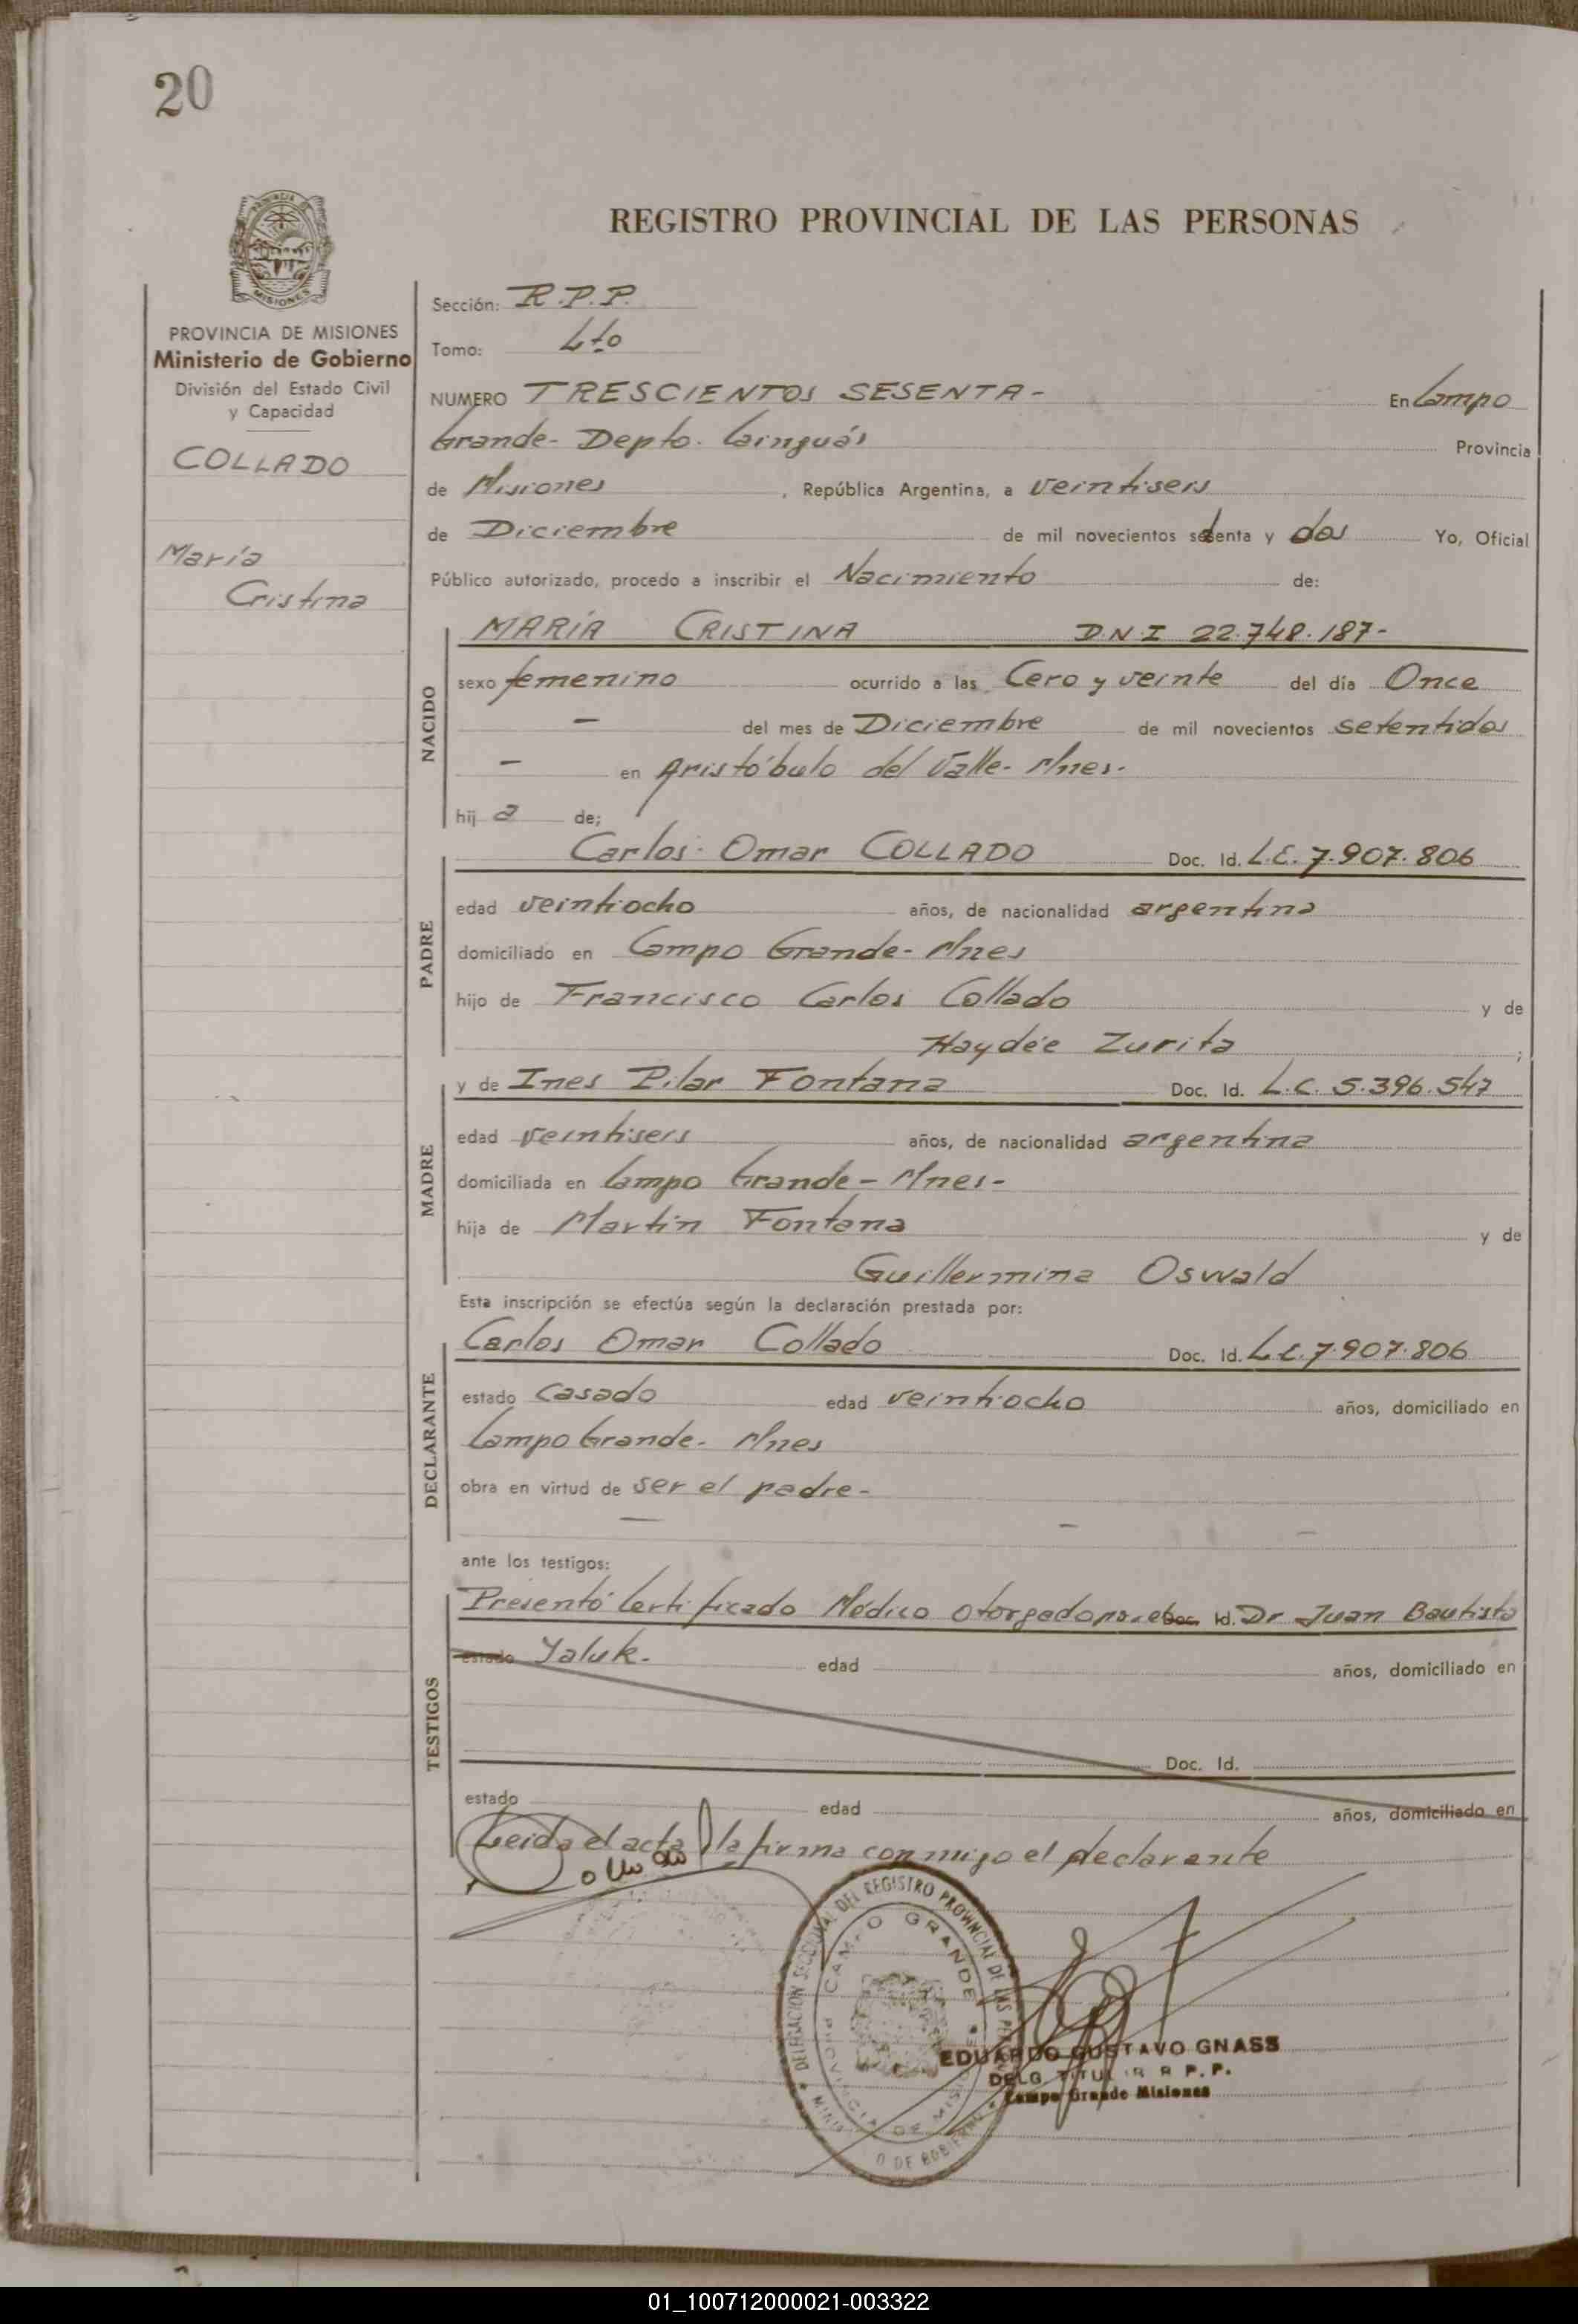 20
REGISTRO PROVINCIAL DE LAS PERSONAS
PROVINCIA DE MISIONES
Ministerio de Gobierno
División del Estado Civil
y Capacidad
COLLADO
María
Cristina
Sección: R.P.P.
Tomo: 4to
NUMERO TRESCIENTOS SESENTA- En Campo
Grande- Depto. Cainguás Provincia
de Misiones, República Argentina, a veintiseis
de Diciembre de mil novecientos setenta y dos Yo, Oficial
Público autorizado, procedo a inscribir el Nacimiento de:
NACIDO
MARÍA CRISTINA D.N.I 22.748.187-
sexo femenino ocurrido a las Cero y veinte del día Once
- del mes de Diciembre de mil novecientos setentidos
- en Aristóbulo del Valle- Mnes-
hij a de;
PADRE
Carlos Omar COLLADO Doc. Id. L.E. 7.907.806
edad veintiocho años, de nacionalidad argentina
domiciliado en Campo Grande- Mnes
hijo de Francisco Carlos Collado y de
Haydée Zurita ;
MADRE
y de Ines Pilar Fontana Doc. Id. L.C. 5.396.547
edad veintiseis años, de nacionalidad argentina
domiciliada en Campo Grande- Mnes-
hija de Martin Fontana y de
Guillermina Oswald
Esta inscripción se efectúa según la declaración prestada por:
DECLARANTE
Carlos Omar Collado Doc. Id. L.E. 7.907.806
estado Casado edad veintiocho años, domiciliado en
Campo Grande- Mnes
obra en virtud de ser el padre-
ante los testigos:
TESTIGOS
Presentó Certificado Médico otorgado por el Doc. Id. Dr Juan Bautista
estado Yaluk. edad años, domiciliado en
Doc. Id.
estado edad años, domiciliado en
Leida el acta la firma conmigo el declarante
DELEGACION SECCIONAL DEL REGISTRO PROVINCIAL DE LAS
CAMPO GRANDE
PROVINCIA DE MISIONES
EDUARDO GUSTAVO GNASS
DELG TITULAR R.P.P.
Campo Grande Misiones
01_100712000021-003322